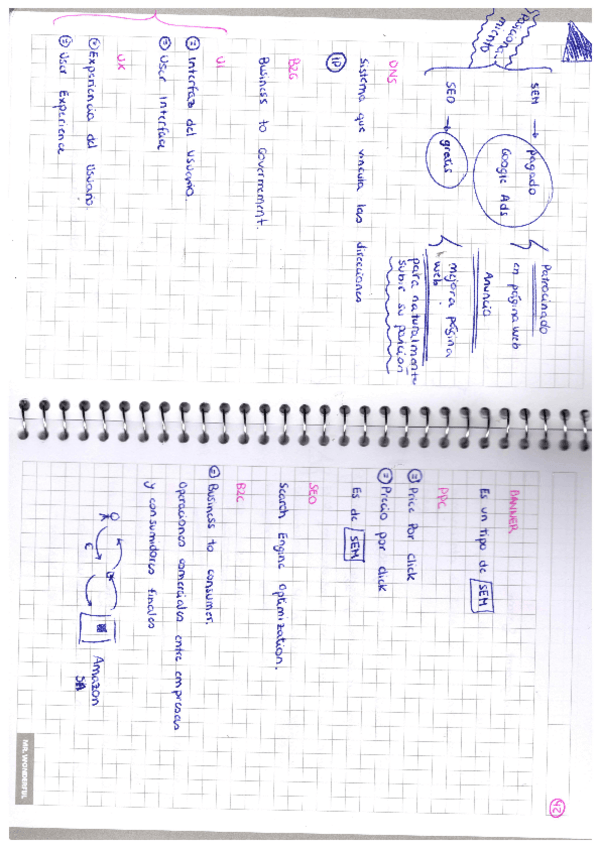 Posiciona-
miento
SEM → pagado
Google Ads
Patrocinado
en página web
Anuncio
SEO → gratis
mejora página
web
para naturalmente
subir su posición
DNS
Sistema que vincula las direcciones
B2G
Business to Governement.
UI
Interfaz del usuario.
User Interface
UX
Experiencia del usuario.
User Experience
42
BANNER
Es un tipo de SEM
PPC
Price Por click
Precio por click
Es de SEM
SEO
Search Engine Optimization.
B2C
Business to consumer.
Operaciones comerciales entre empresas
y consumidores finales
C
Amazon
SA
MR. WONDERFUL